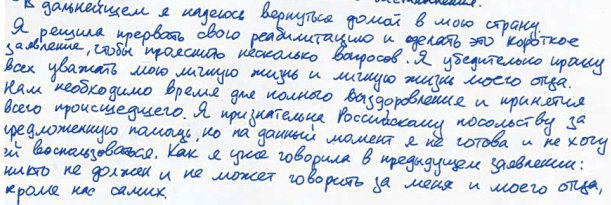 В дальнейшем я надеюсь вернуться домой в мою страну
Я решила прервать свою реабилитацию и сделать это короткое
заявление, чтобы прояснить несколько вопросов. Я убедительно прошу
всех уважать мою личную жизнь и личную жизнь моего отца.
Нам необходимо время для полного выздоровление и принятия
всего происшедшего. Я признательна Российскому посольству за
предложенную помощь, но на данный момент я не готова и не хочу
ей воспользоваться. Как я уже говорила в предыдущем заявлении:
никто не должен и не может говорить за меня и моего отца,
кроме нас самих.